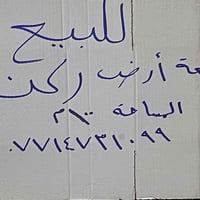 للبيع
قطعة أرض ركن
المساحة ٦٠٠م
٠٧٧١٤٧٣١٠٩٩